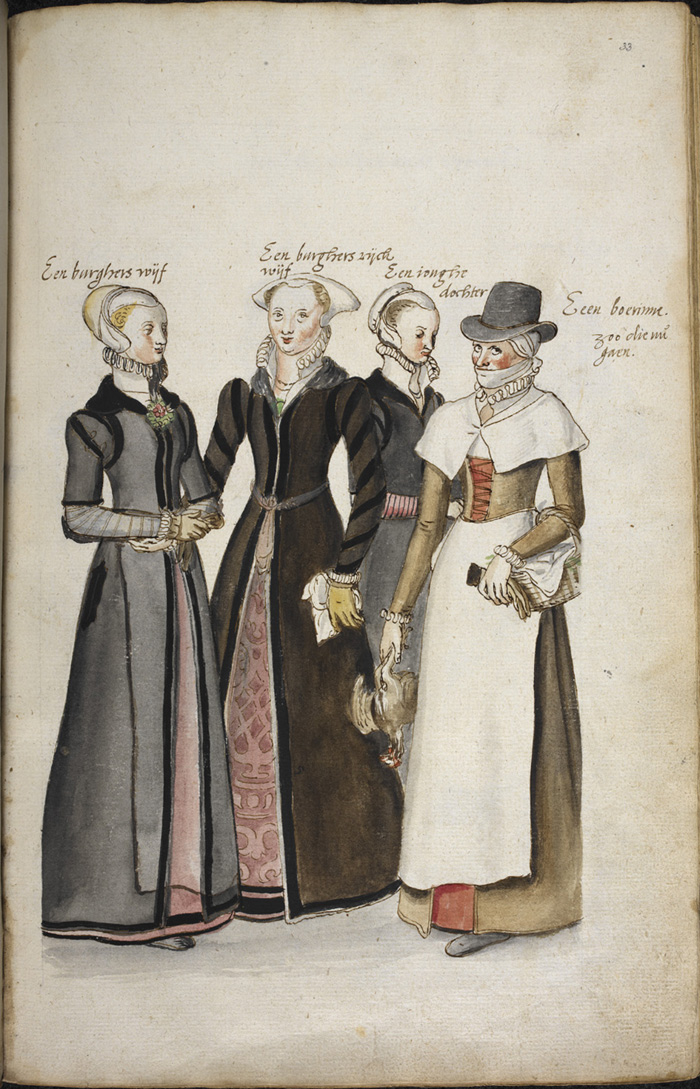 33
Een burghers wijf
Een burghers rijck
wijf
Een ionghe
dochter
Eeen boerinne.
zoo die nu
gaen.